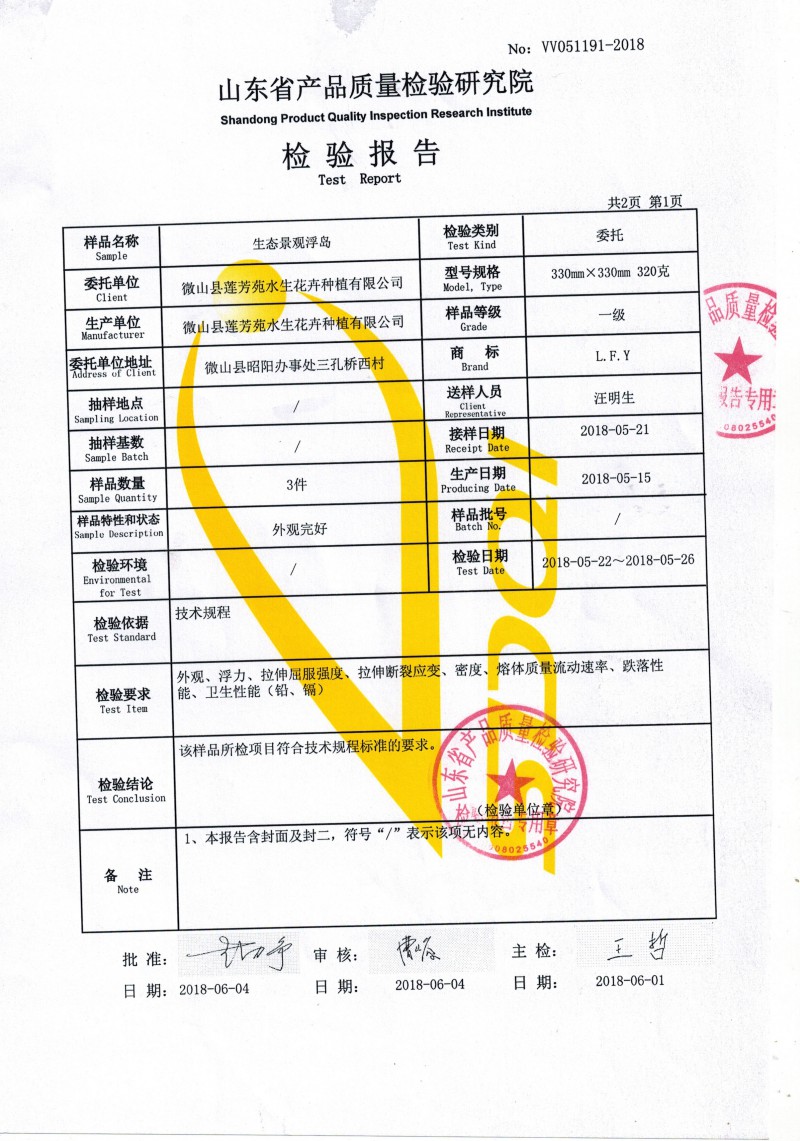 No: VV051191-2018
山东省产品质量检验研究院
Shandong Product Quality Inspection Research Institute
检 验 报 告
Test Report
共2页 第1页
样品名称
Sample
生态景观浮岛
检验类别
Test Kind
委托
委托单位
Client
微山县莲芳苑水生花卉种植有限公司
型号规格
Model, Type
330mm×330mm 320克
生产单位
Manufacturer
微山县莲芳苑水生花卉种植有限公司
样品等级
Grade
一级
委托单位地址
Address of Client
微山县昭阳办事处三孔桥西村
商 标
Brand
L.F.Y
抽样地点
Sampling Location
/
送样人员
Client
Representative
汪明生
抽样基数
Sample Batch
/
接样日期
Receipt Date
2018-05-21
样品数量
Sample Quantity
3件
生产日期
Producing Date
2018-05-15
样品特性和状态
Sample Description
外观完好
样品批号
Batch No.
/
检验环境
Environmental
for Test
/
检验日期
Test Date
2018-05-22～2018-05-26
检验依据
Test Standard
技术规程
检验要求
Test Item
外观、浮力、拉伸屈服强度、拉伸断裂应变、密度、熔体质量流动速率、跌落性
能、卫生性能（铅、镉）
检验结论
Test Conclusion
该样品所检项目符合技术规程标准的要求。
（检验单位章）
山东省产品质量检验研究院
专用章
08025540
备 注
Note
1、本报告含封面及封二，符号“/”表示该项无内容。
品质量检
报告专用
08025540
批 准：
审 核：
主 检：
王哲
日 期：2018-06-04
日 期：
2018-06-04
日 期：
2018-06-01